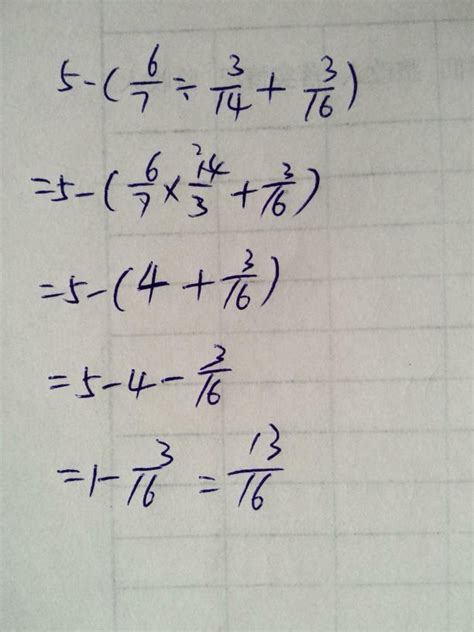 5-(6/7÷3/14+3/16)
=5-(6/7×14/3+3/16)
=5-(4+3/16)
=5-4-3/16
=1-3/16=13/16